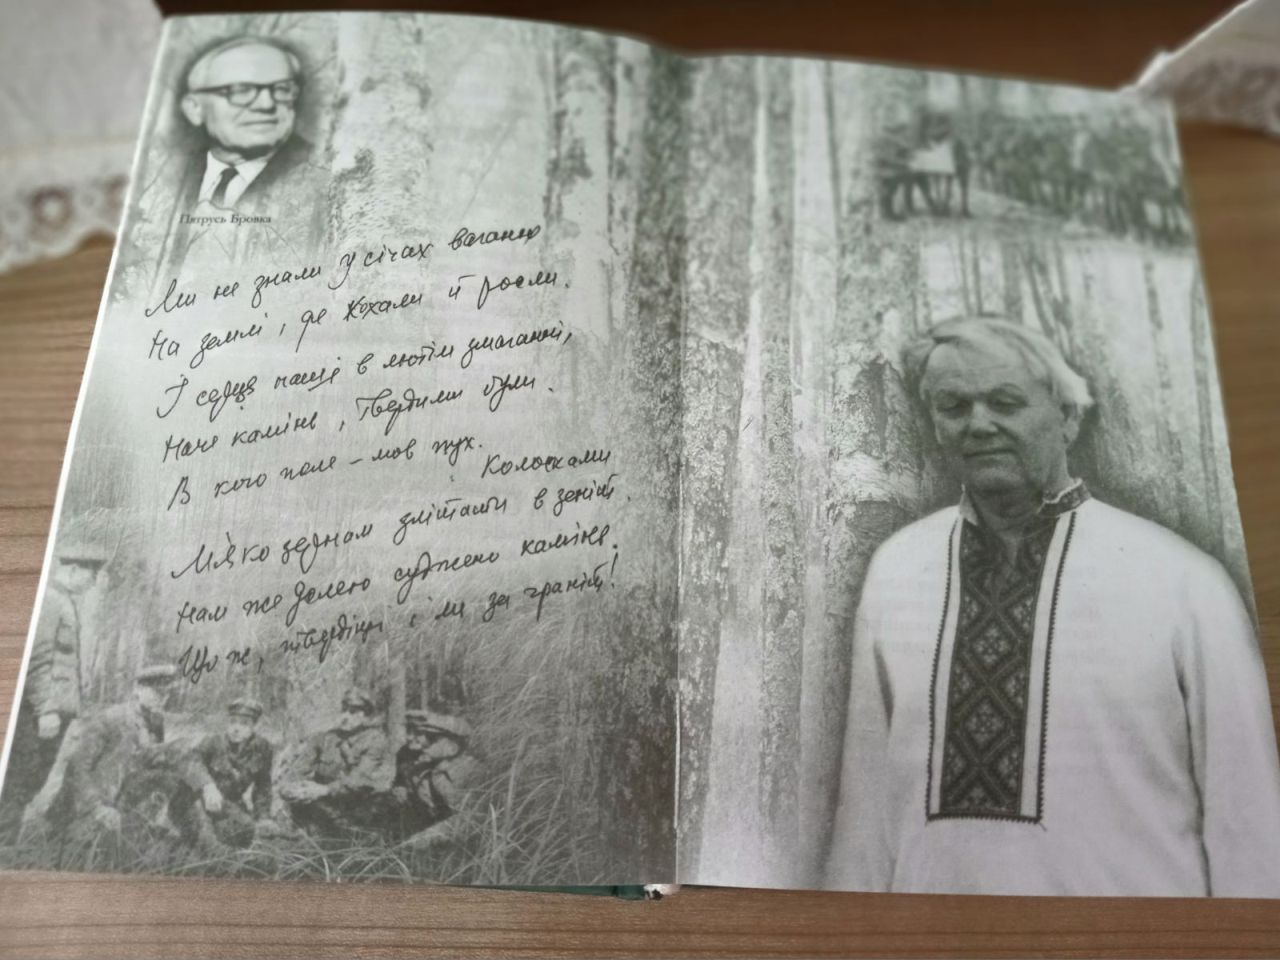 Пятрусь Бровка
Ми не знали у січах вагання
На землі, де кохали й росли.
І серця наші в лютім змаганні,
Наче камінь, твердими були.
В кого поле – мов пух. Колосками
М'яко зернам злітати в зеніт.
Нам же долею суджено камінь.
Що ж, твердіші і ми за граніт!